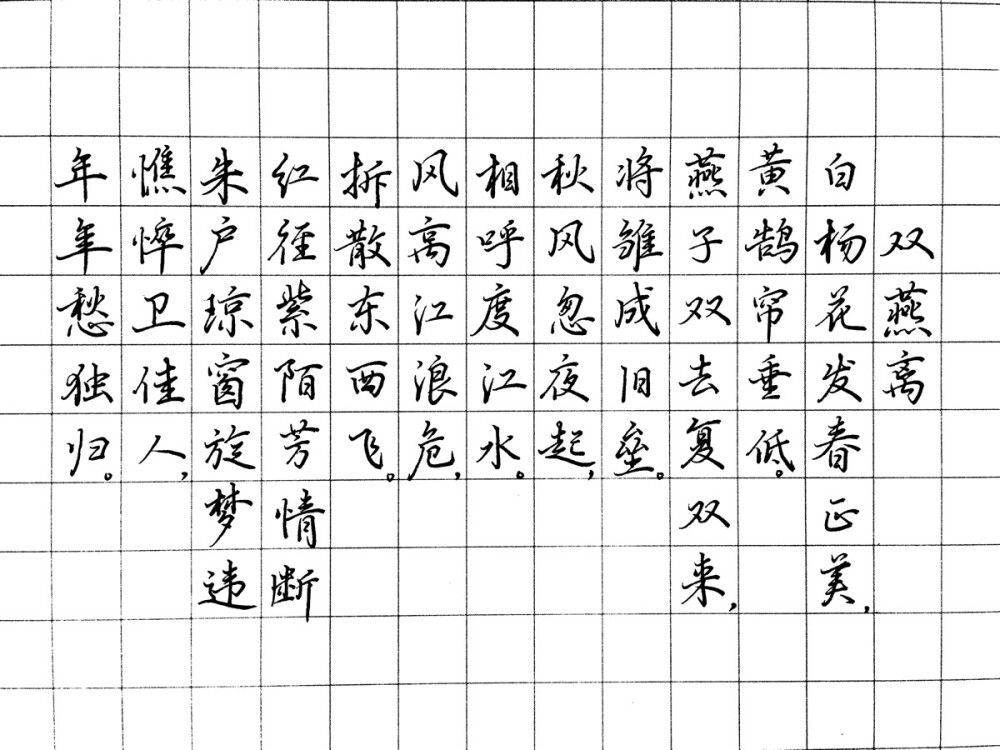 双燕离
白杨花发春正美,
黄鹄帘垂低。
燕子双去复双来,
将雏成旧垒。
秋风忽夜起,
相呼度江水。
风高江浪危,
拆散东西飞。
红径紫陌芳情断
朱户琼窗旋梦违
憔悴卫佳人,
年年愁独归。